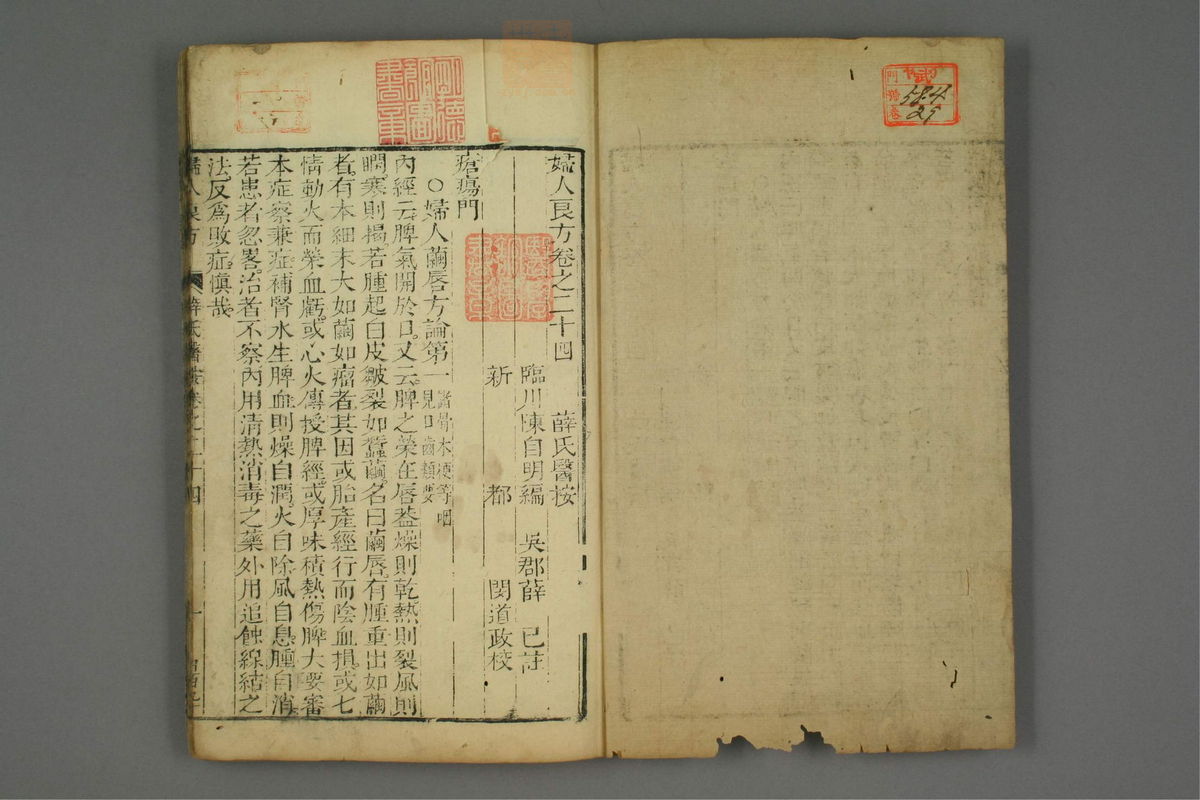 婦人良方卷之二十四　薛氏醫按
臨川陳自明編　吳郡薛　已註
新　都　閔道政校
瘡瘍門
○婦人繭唇方論第一 諸骨木梗等咽
見口齒類要
內經云脾氣開於口又云脾之榮在唇蓋燥則乾熱則裂風則
瞤寒則揭若腫起白皮皺裂如蠶繭名曰繭唇有腫重出如繭
者有本細末大如繭如瘤者其因或胎產經行而陰血損或七
情動火而榮血虧或心火傳授脾經或厚味積熱傷脾大要審
本症察兼症補腎水生脾血則燥自潤火自除風自息腫自消
若患者忽畧治者不察內用清熱消毒之藥外用追蝕線結之
法反為敗症慎哉
婦人良方 薛氏醫按卷之二十四 一
58.4
29